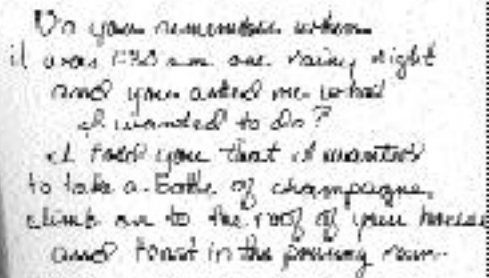 Do you remember when
it was 1:30 am one rainy night
and you asked me what
I wanted to do?
I told you that I wanted
to take a bottle of champagne,
climb on to the roof of your house
and toast in the pouring rain.